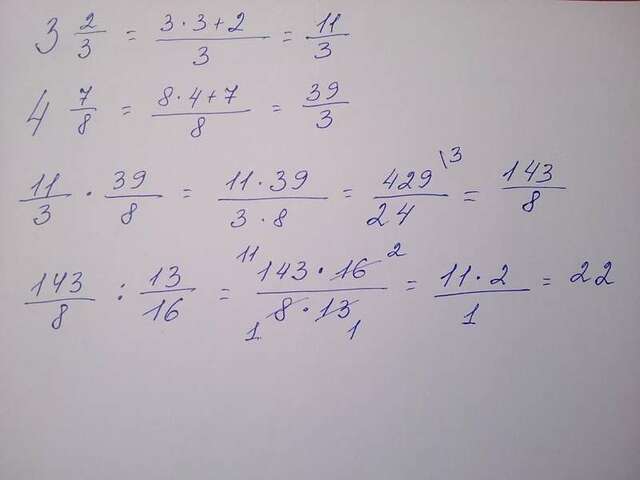 3 2/3 = (3·3+2)/3 = 11/3
4 7/8 = (8·4+7)/8 = 39/3
11/3 · 39/8 = (11·39)/(3·8) = 429/24 \3 = 143/8
143/8 : 13/16 = (11 143·16 2)/(1 8·13 1) = (11·2)/1 = 22